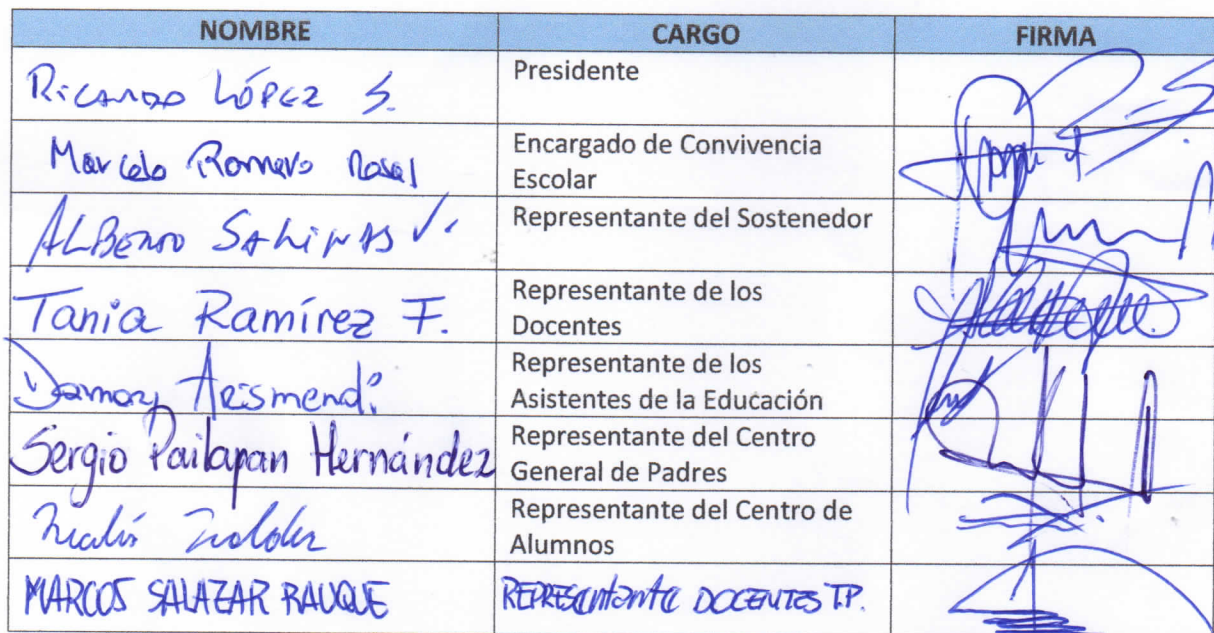 NOMBRE CARGO FIRMA
Ricardo López S. Presidente
Marcelo Romero Encargado de Convivencia
Escolar
ALBERTO SALINAS V. Representante del Sostenedor
Tania Ramírez F. Representante de los
Docentes
Arismendi Representante de los
Asistentes de la Educación
Sergio Pailapan Hernández Representante del Centro
General de Padres
Representante del Centro de
Alumnos
MARCOS SALAZAR RAUQUE REPRESENTANTE DOCENTES T.P.